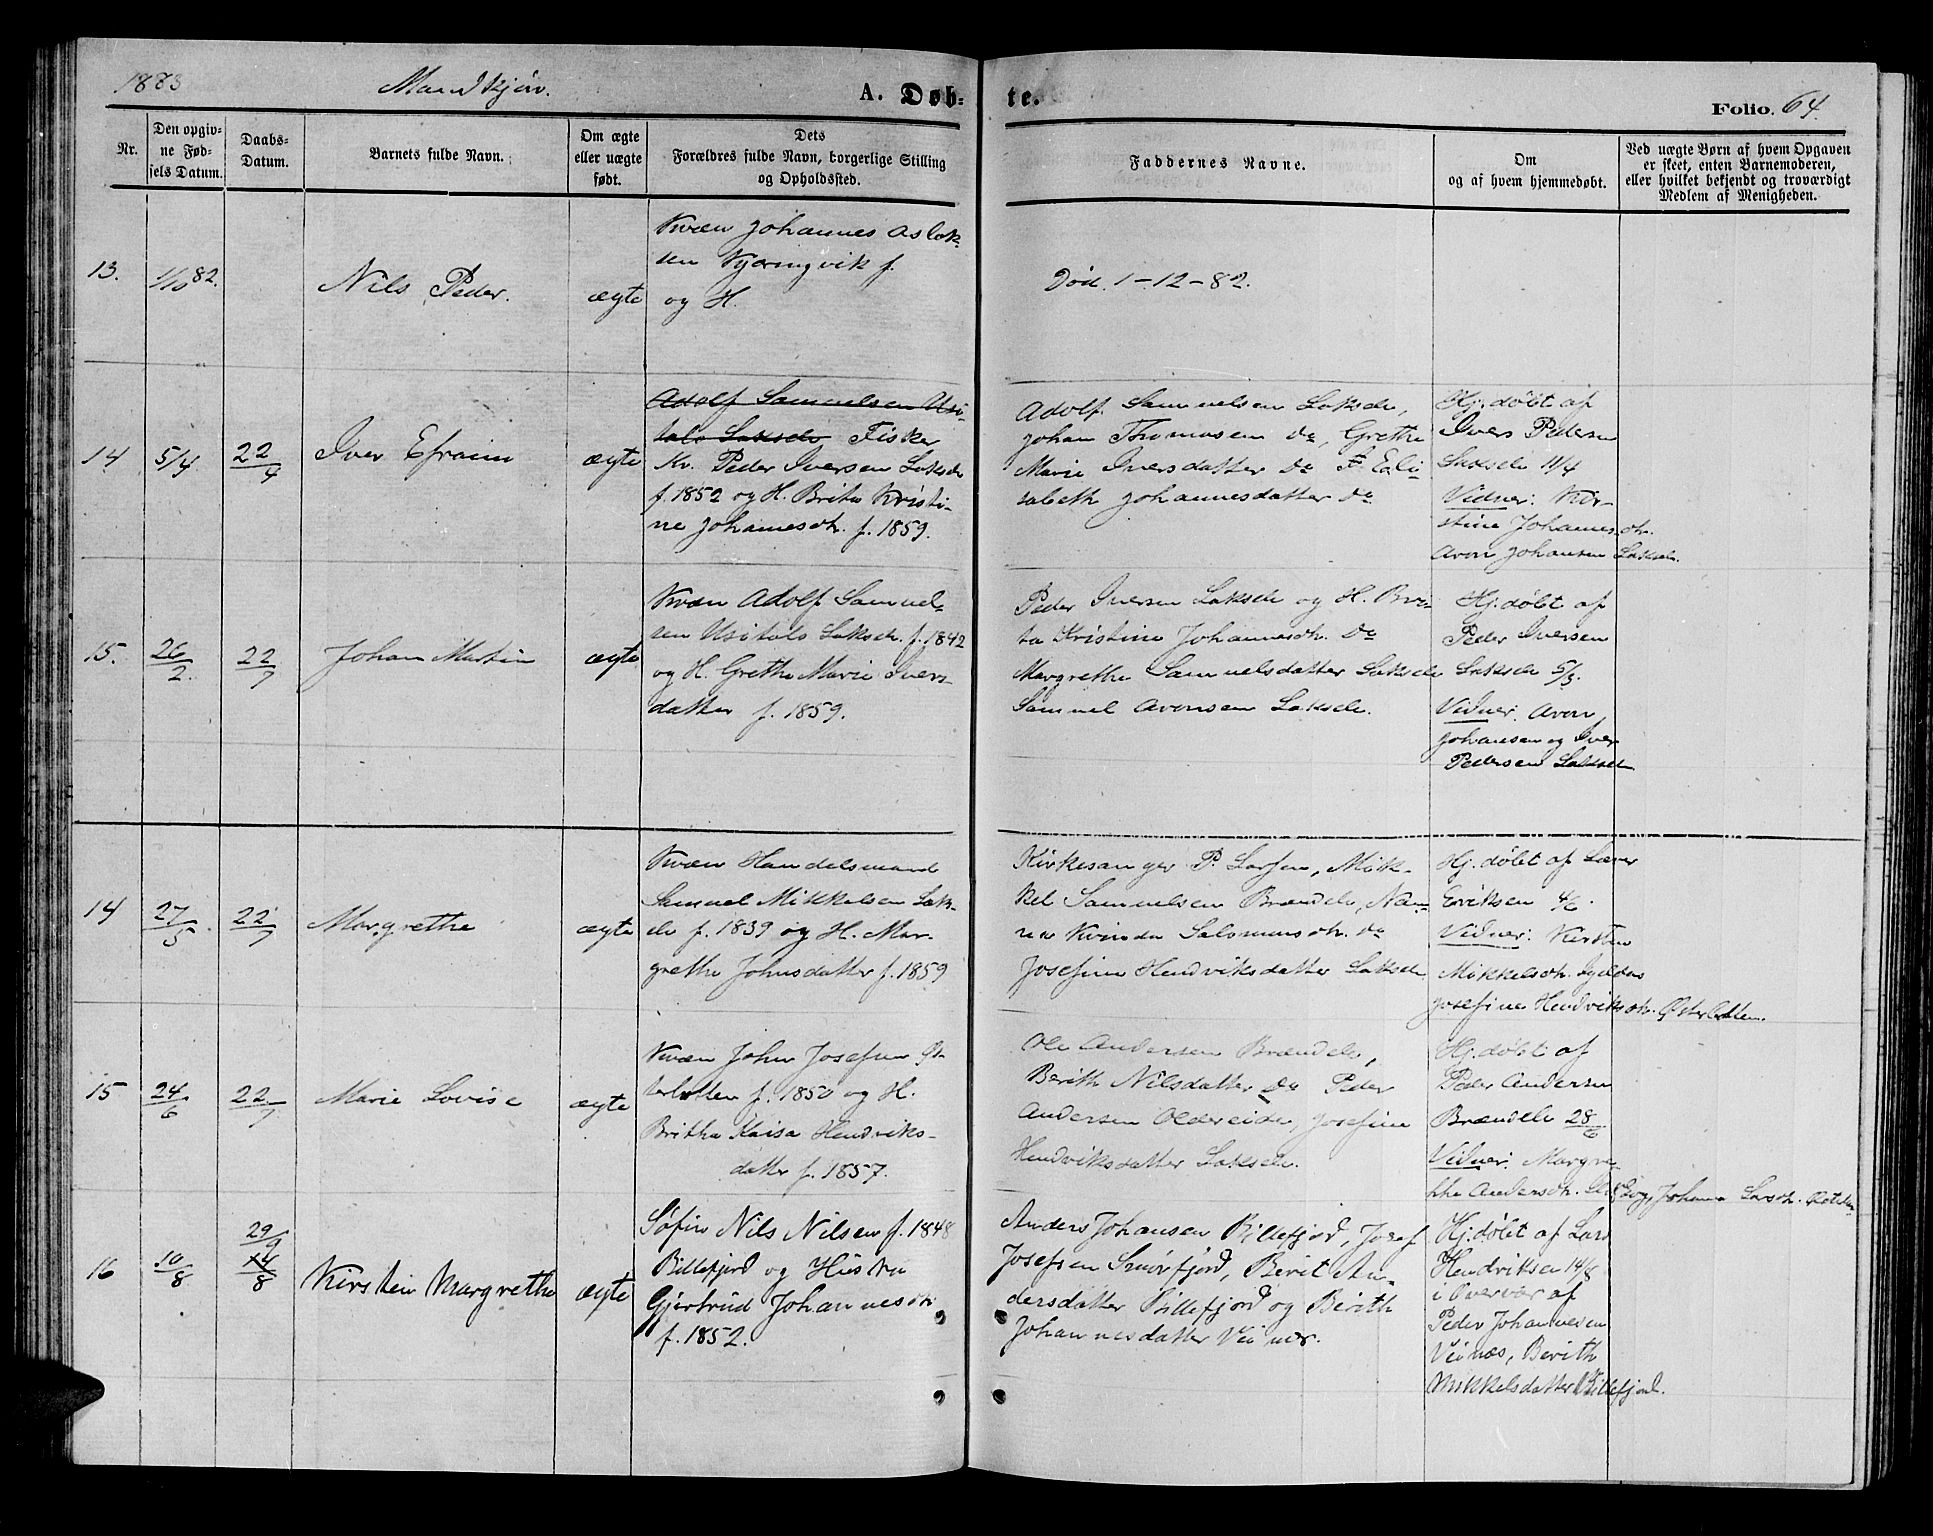 1883 Mandkjøn. A. Døbte. Folio. 64.
Nr.
Den opgiv-
ne Fød-
sels Datum.
Daabs-
Datum.
Barnets fulde Navn.
Om ægte
eller uægte
født.
Dets
Forældres fulde Navn, borgerlige Stilling
og Opholdssted.
Faddernes Navne.
Om
og af hvem hjemmedøbt.
Ved uægte Børn af hvem Opgaven
er skeet, enten Barnemoderen,
eller hvilket bekjendt og troværdigt
Medlem af Menigheden.
13.
1/10 82.
Nils Peder.
ægte
Kvæn Johannes Aslak-
sen Kjæringvik f.
og H.
Død. 1-12-82.
14
5/4
22/4
Iver Efraim
ægte
Adolf Samuelsen Usi-
talo Lakselv Fisker
Kv. Peder Iversen Lakselv
f. 1852 og H. Brita Kristi-
ne Johannesdtr. f. 1859.
Adolf Samuelsen Lakselv,
Johan Thomasen do, Grethe
Marie Iversdatter do Eli-
sabeth Johannesdatter do
Hj. døbt af
Ivers Pedersen
Lakselv 11/4
Vidner: Kir-
stine Johannesdtr.
Aron Johansen Lakselv.
15.
26/2
22/7
Johan Martin
ægte
Kvæn Adolf Samuel-
sen Usitalo Lakselv. f. 1842
og H. Grethe Marie Ivers-
datter f. 1859.
Peder Iversen Lakselv og H. Bri-
ta Kristine Johannesdtr. do
Margrethe Samuelsdatter Lakselv
Samuel Aronsen Lakselv.
Hj. døbt af
Peder Iversen
Lakselv 5/3.
Vidner. Aron
Johansen og Iver
Pedersen Lakselv
14
27/5.
22/7
Margrethe
ægte
Kvæn Handelsmand
Samuel Mikkelsen Lak-
selv f. 1839 og H. Mar-
grethe Johnsdatter f. 1859
Kirkesanger P. Larsen, Mik-
kel Samuelsen Brændelv, Nan-
na Kvinda Salomonsdtr. do
Josefine Hendriksdatter Lakselv
Hj. døbt af Lærer
Eriksen 4/6.
Vidner: Kirsten
Mikkelsdtr.
Josefine Hendriksdtr. Østerbotten.
15
24/6
22/7
Marie Lovise
ægte
Kvæn John Josefsen Øs-
terbotten f. 1850 og H.
Britha Kaisa Hendriks-
datter f. 1857.
Ole Andersen Brændelv,
Berith Nilsdatter do Peder
Andersen Oldereide, Josefine
Hendriksdatter Lakselv.
Hj. døbt af
Peder Andersen
Brændelv 28/6
Vidner: Margre-
the Andersdtr. Johanna Larsdtr.
16
10/8
29/9
14/8
Kirsten Margrethe
ægte
Søfin Nils Nilsen f. 1848
Billefjord og Hustru
Gjertrud Johannesdtr
f. 1852.
Anders Johansen Billefjord, Josef
Josefsen Smørfjord, Berit An-
dersdatter Billefjord og Berith
Johannesdatter Veines.
Hj. døbt af Lars
Hendriksen 14/8
i Overvær af
Peder Johannesen
Veinæs, Berith
Mikkelsdatter Billefjord.